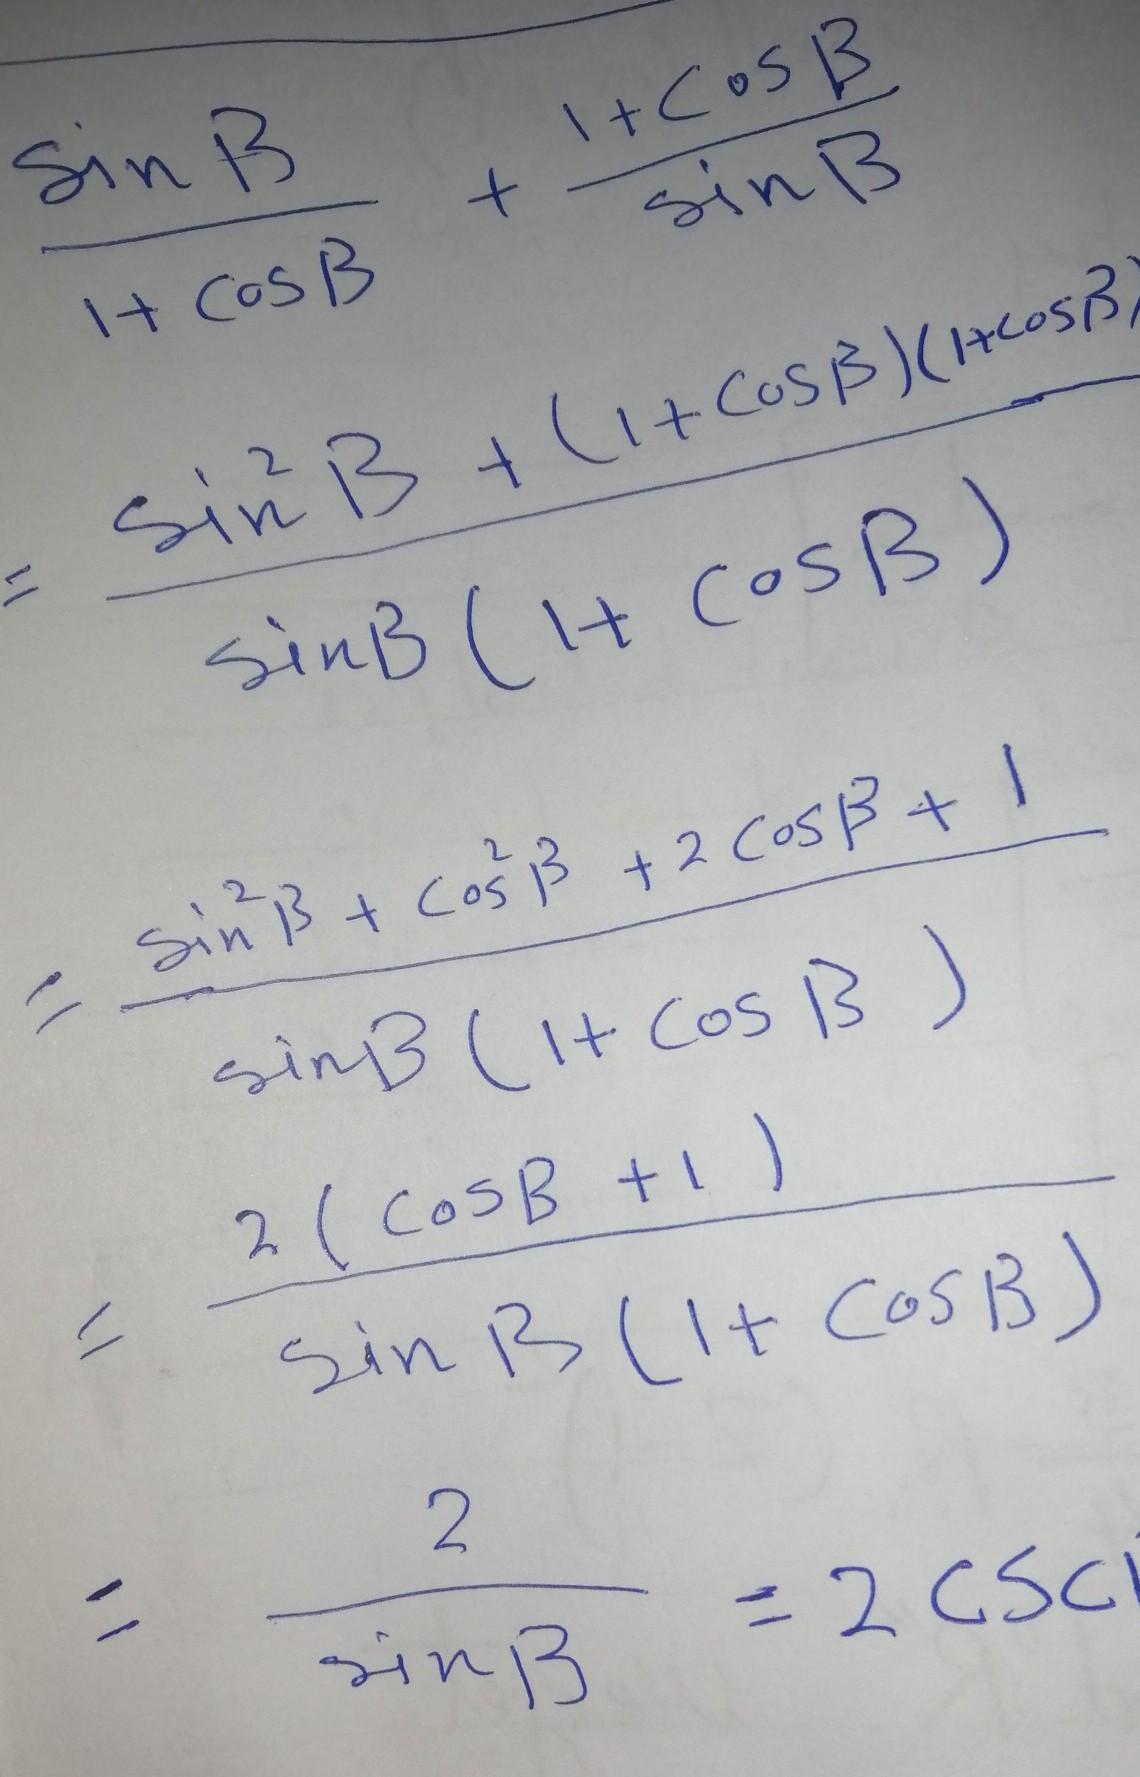 sin B / 1 + cos B + 1 + cos B / sin B
= sin² B + (1 + cos B)(1 + cos B) / sin B (1 + cos B)
= sin² B + cos² B + 2 cos B + 1 / sin B (1 + cos B)
= 2 (cos B + 1) / sin B (1 + cos B)
= 2 / sin B = 2 csc